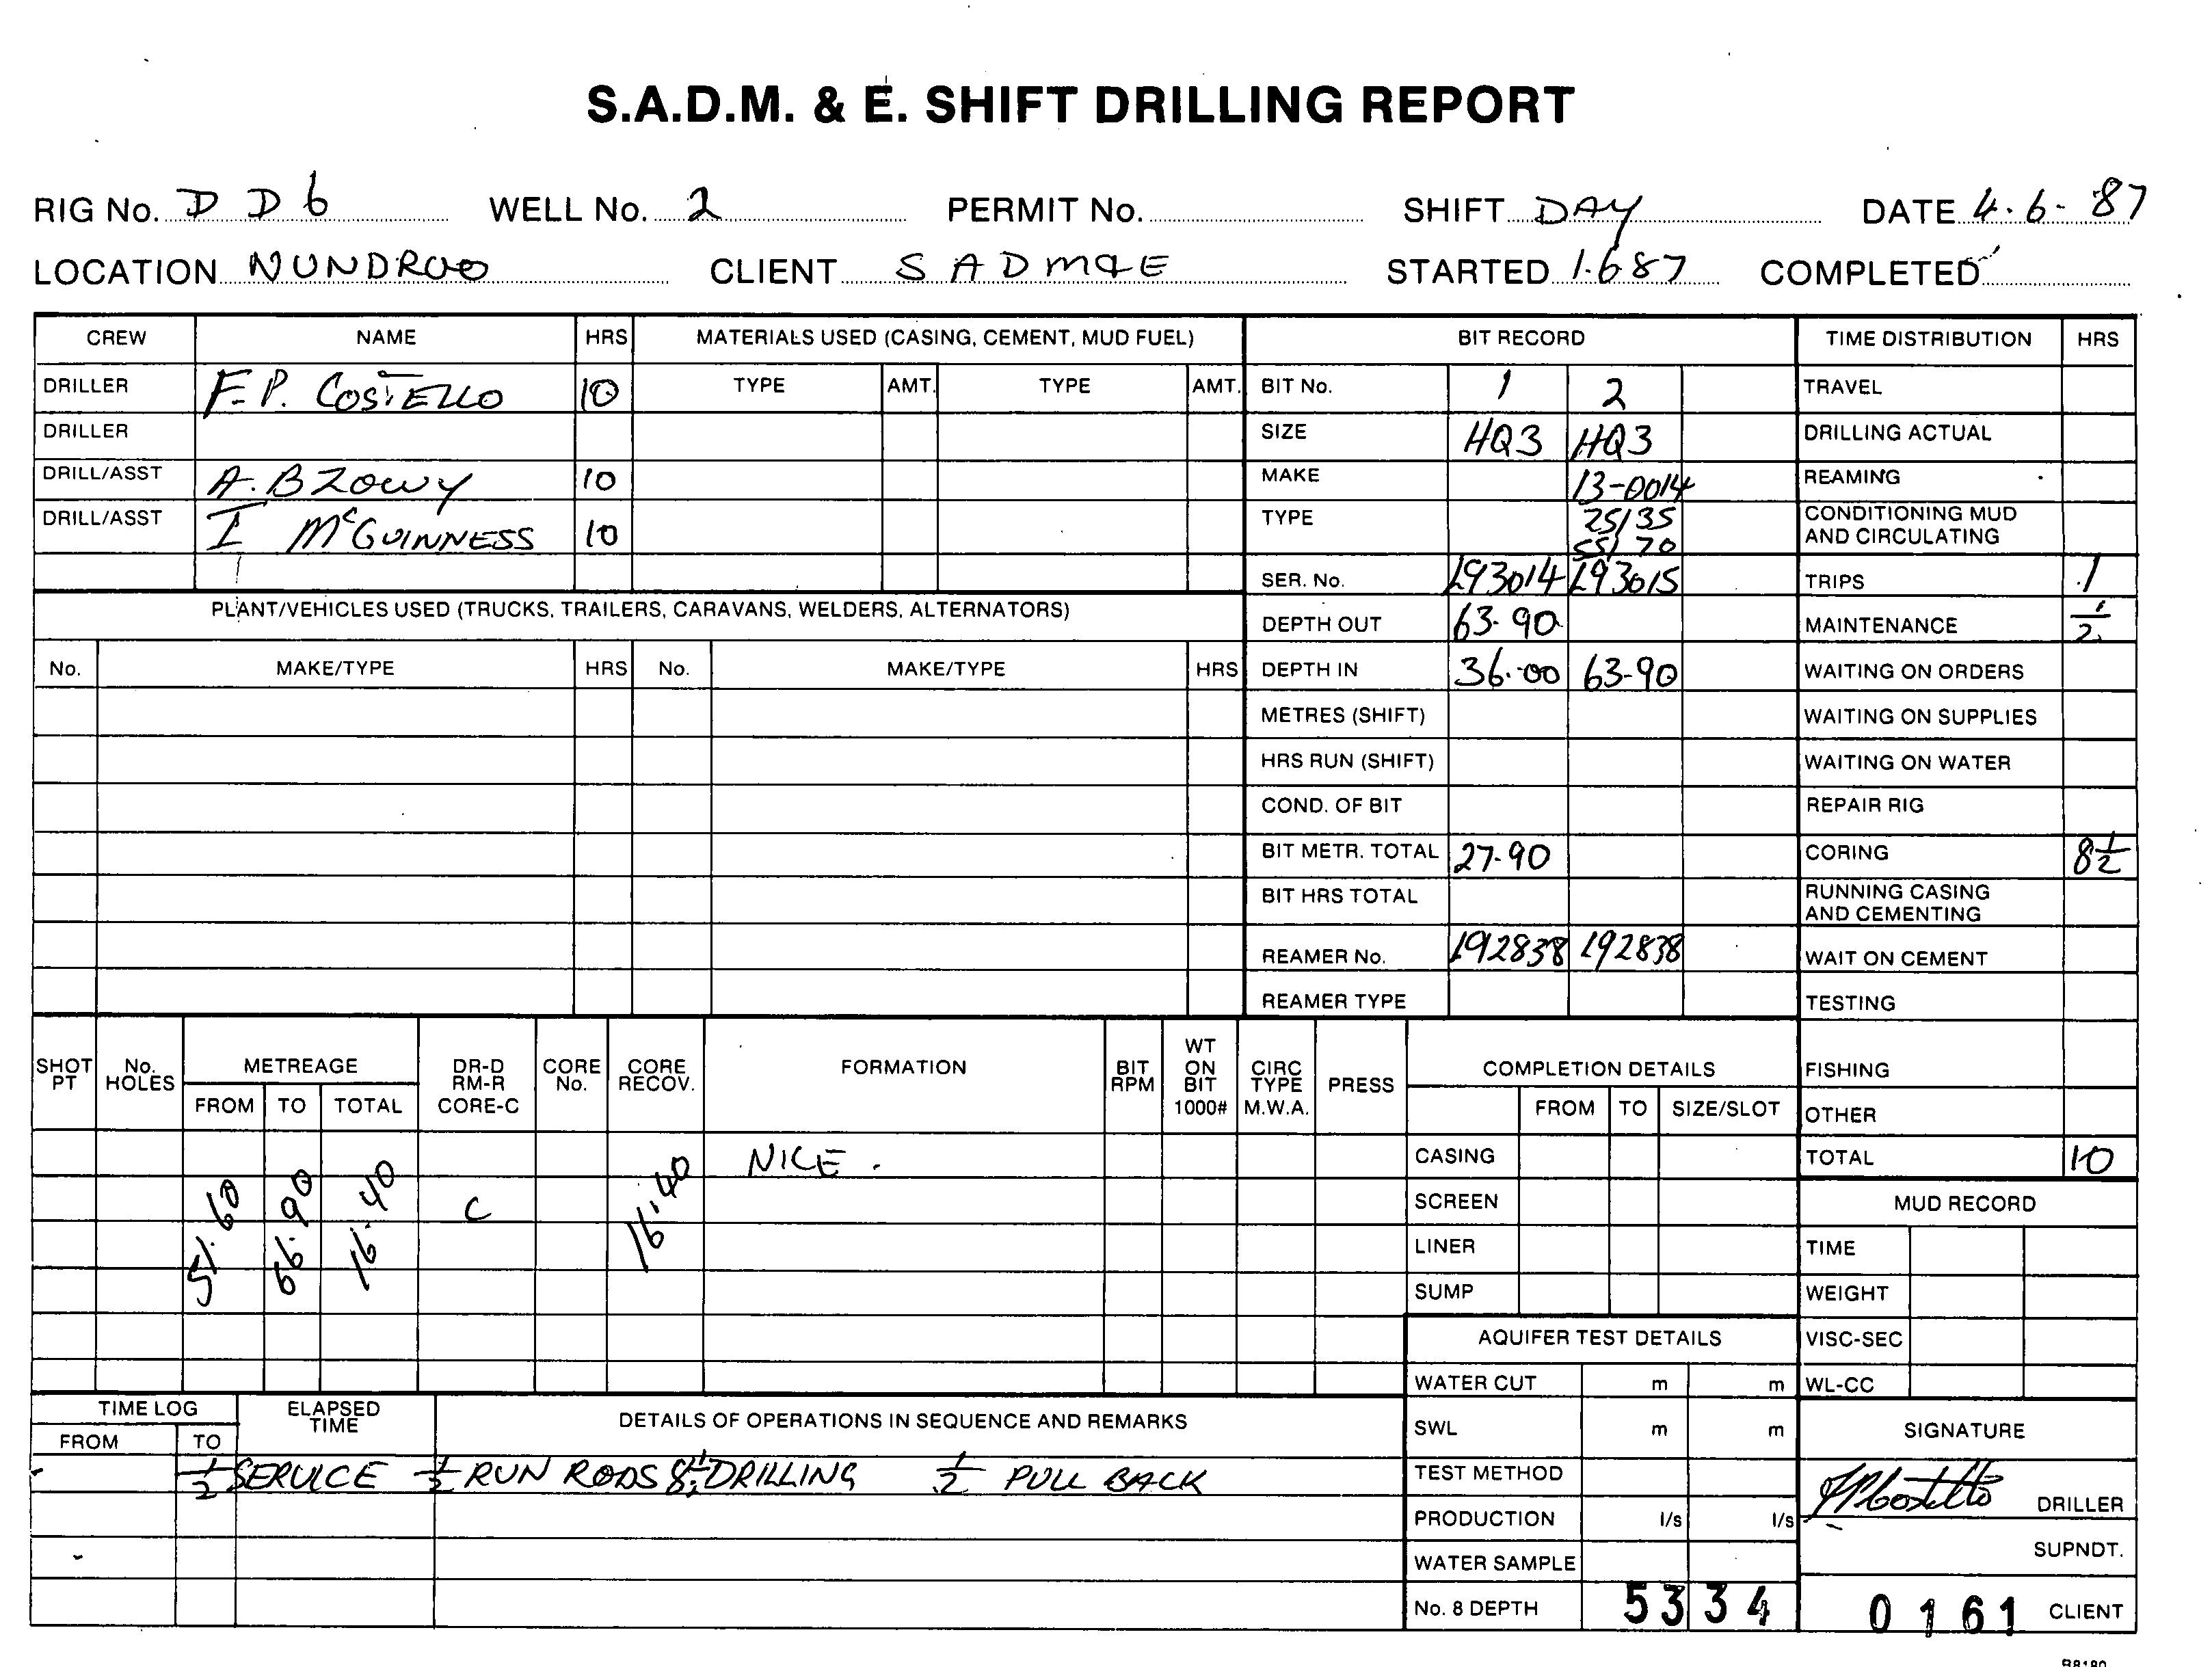 S.A.D.M. & E. SHIFT DRILLING REPORT
RIG No. D D 6 WELL No. 2 PERMIT No. SHIFT DAY DATE 4.6.87
LOCATION NUNDROO CLIENT S A D M & E STARTED 1.6 87 COMPLETED
CREW NAME HRS MATERIALS USED (CASING, CEMENT, MUD FUEL) BIT RECORD TIME DISTRIBUTION HRS
DRILLER F.P. COSTELLO 10 TYPE AMT. TYPE AMT. BIT No. 1 2 TRAVEL
DRILLER SIZE HQ3 HQ3 DRILLING ACTUAL
DRILL/ASST A. BZOWY 10 MAKE 13-0014 REAMING
DRILL/ASST I McGUINNESS 10 TYPE 25/35 55/70 CONDITIONING MUD AND CIRCULATING
SER. No. L93014 L93015 TRIPS 1
PLANT/VEHICLES USED (TRUCKS, TRAILERS, CARAVANS, WELDERS, ALTERNATORS) DEPTH OUT 63.90 MAINTENANCE 1/2
No. MAKE/TYPE HRS No. MAKE/TYPE HRS DEPTH IN 36.00 63-90 WAITING ON ORDERS
METRES (SHIFT) WAITING ON SUPPLIES
HRS RUN (SHIFT) WAITING ON WATER
COND. OF BIT REPAIR RIG
BIT METR. TOTAL 27.90 CORING 8 1/2
BIT HRS TOTAL RUNNING CASING AND CEMENTING
REAMER No. L92838 L92838 WAIT ON CEMENT
REAMER TYPE TESTING
SHOT PT No. HOLES METREAGE DR-D RM-R CORE-C CORE No. CORE RECOV. FORMATION BIT RPM WT ON BIT 1000# CIRC TYPE M.W.A. PRESS COMPLETION DETAILS FISHING
FROM TO TOTAL FROM TO SIZE/SLOT OTHER
NICE. CASING TOTAL 10
51.60 66.90 16.40 C 16.40 SCREEN MUD RECORD
LINER TIME
SUMP WEIGHT
AQUIFER TEST DETAILS VISC-SEC
WATER CUT m m WL-CC
TIME LOG ELAPSED TIME DETAILS OF OPERATIONS IN SEQUENCE AND REMARKS SWL m m SIGNATURE
FROM TO
1/2 SERVICE 1/2 RUN RODS 8 1/2 DRILLING 1/2 PULL BACK TEST METHOD
FPCostello DRILLER
PRODUCTION l/s l/s
SUPNDT.
WATER SAMPLE
No. 8 DEPTH 5334 0161 CLIENT